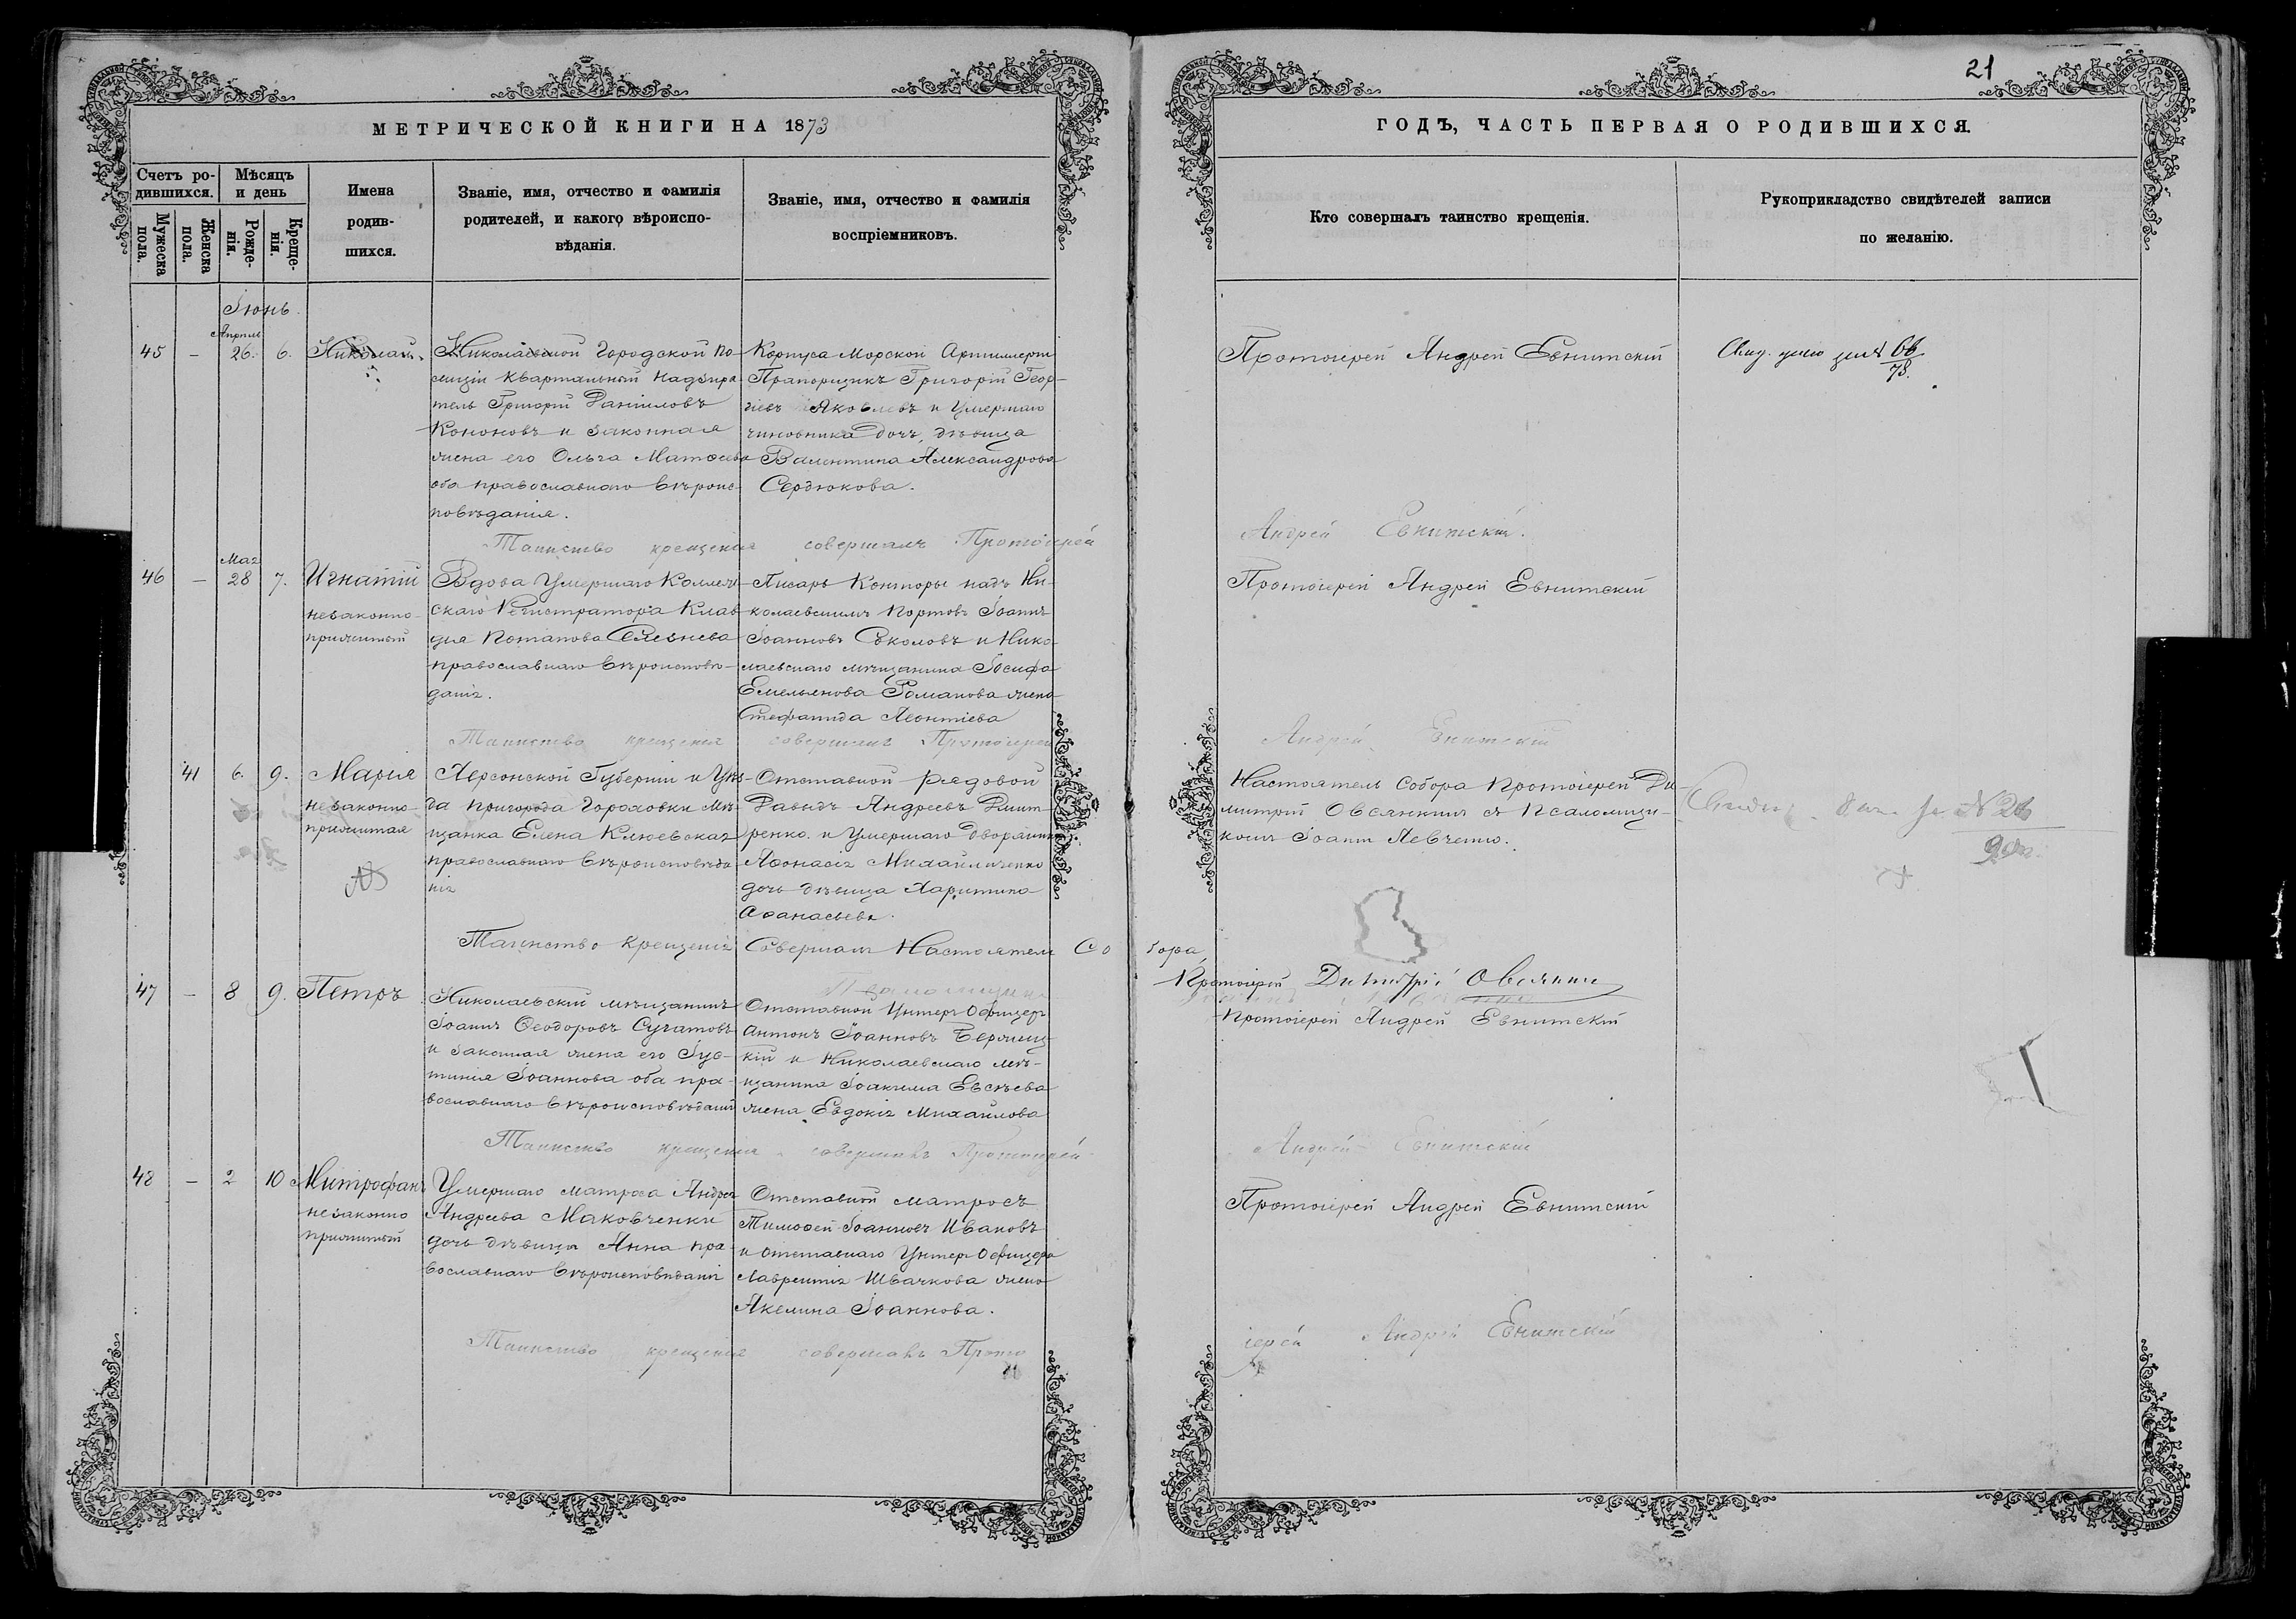 21
МЕТРИЧЕСКОЙ КНИГИ НА 1873
ГОДЪ, ЧАСТЬ ПЕРВАЯ О РОДИВШИХСЯ.
Счетъ ро-
дившихся.
Мѣсяцъ
и день
Мужеска
пола.
Женска
пола.
Рожде-
нія.
Креще-
нія.
Имена
родив-
шихся.
Званіе, имя, отчество и фамилія
родителей, и какого вѣроиспо-
вѣданія.
Званіе, имя, отчество и фамилія
воспріемниковъ.
Кто совершалъ таинство крещенія.
Рукоприкладство свидѣтелей записи
по желанію.
Іюнь
45
-
Апрѣля
26.
6.
Николай
Николаевской Городской по-
лиціи квартальный надзира
тель Григорій Даніиловъ
Кононовъ и законная
жена его Ольга Матѳеева
оба православнаго вѣроис-
повѣданія.
Корпуса Морской Артиллеріи
Прапорщикъ Григорій Геор-
гіевъ Яковлевъ и умершаго
чиновника дочь, дѣвица
Валентина Александрова
Сердюкова.
Протоіерей Андрей Евнитскій
66
73.
Таинство крещенія совершалъ Протоіерей
Андрей Евнитскій.
46
-
Мая
28
7.
Игнатій
незаконно-
прижитый
Вдова умершаго Коллеж-
скаго Регистратора Клав
дія Потапова Селезнева
православнаго вѣроисповѣ-
данія.
Писарь Конторы надъ Ни-
колаевскимъ портомъ Іоаннъ
Іоанновъ Соколовъ и Нико-
лаевскаго мѣщанина Іосифа
Емельянова Романова жена
Стефанида Леонтіева
Протоіерей Андрей Евнитскій
Таинство крещенія совершалъ Протоіерей
Андрей Евнитскій
41
6.
9.
Марія
незаконно-
прижитая
Херсонской Губерніи и Уѣз-
да пригорода Гороховки мѣ-
щанка Елена Клюевская
православнаго вѣроисповѣда
нія
Отставной рядовой
Давидъ Андреевъ Дмит
ренко и умершаго дворянина
Аѳонасія Михайличенко
дочь дѣвица Харитина
Аѳанасьева.
Настоятель Собора Протоіерей Ди
митрій Овсянкинъ съ Псаломщи-
комъ Іоанн Левченко.
№ 26
Таинство Крещенія Совершалъ Настоятель Со бора
Протоіерей Димитрій Овсянкинъ
47
-
8
9.
Петръ
Николаевскій мѣщанинъ
Іоаннъ Ѳеодоровъ Сугатовъ
и законная жена его Іус-
тинія Іоаннова оба пра-
вославнаго вѣроисповѣданія
Отставной Унтеръ Офицеръ
Антонъ Іоанновъ Бержиц-
кій и Николаевскаго мѣ-
щанина Іоакима Евсѣева
жена Евдокія Михайлова
Протоіерей Андрей Евнитскій
Таинство крещенія совершалъ Протоіерей
Андрей Евнитскій
48
-
2
10
Митрофанъ
незаконно
прижитый
Умершаго матроса Андрея
Андреева Маковченки
дочь дѣвица Анна пра-
вославнаго вѣроисповѣданія
Отставной матросъ
Тимоѳей Іоанновъ Ивановъ
и отставнаго Унтеръ Офицера
Лаврентія Швачкова жена
Акелина Іоаннова.
Протоіерей Андрей Евнитскій
Таинство крещенія совершалъ Прото
іерей Андрей Евнитскій